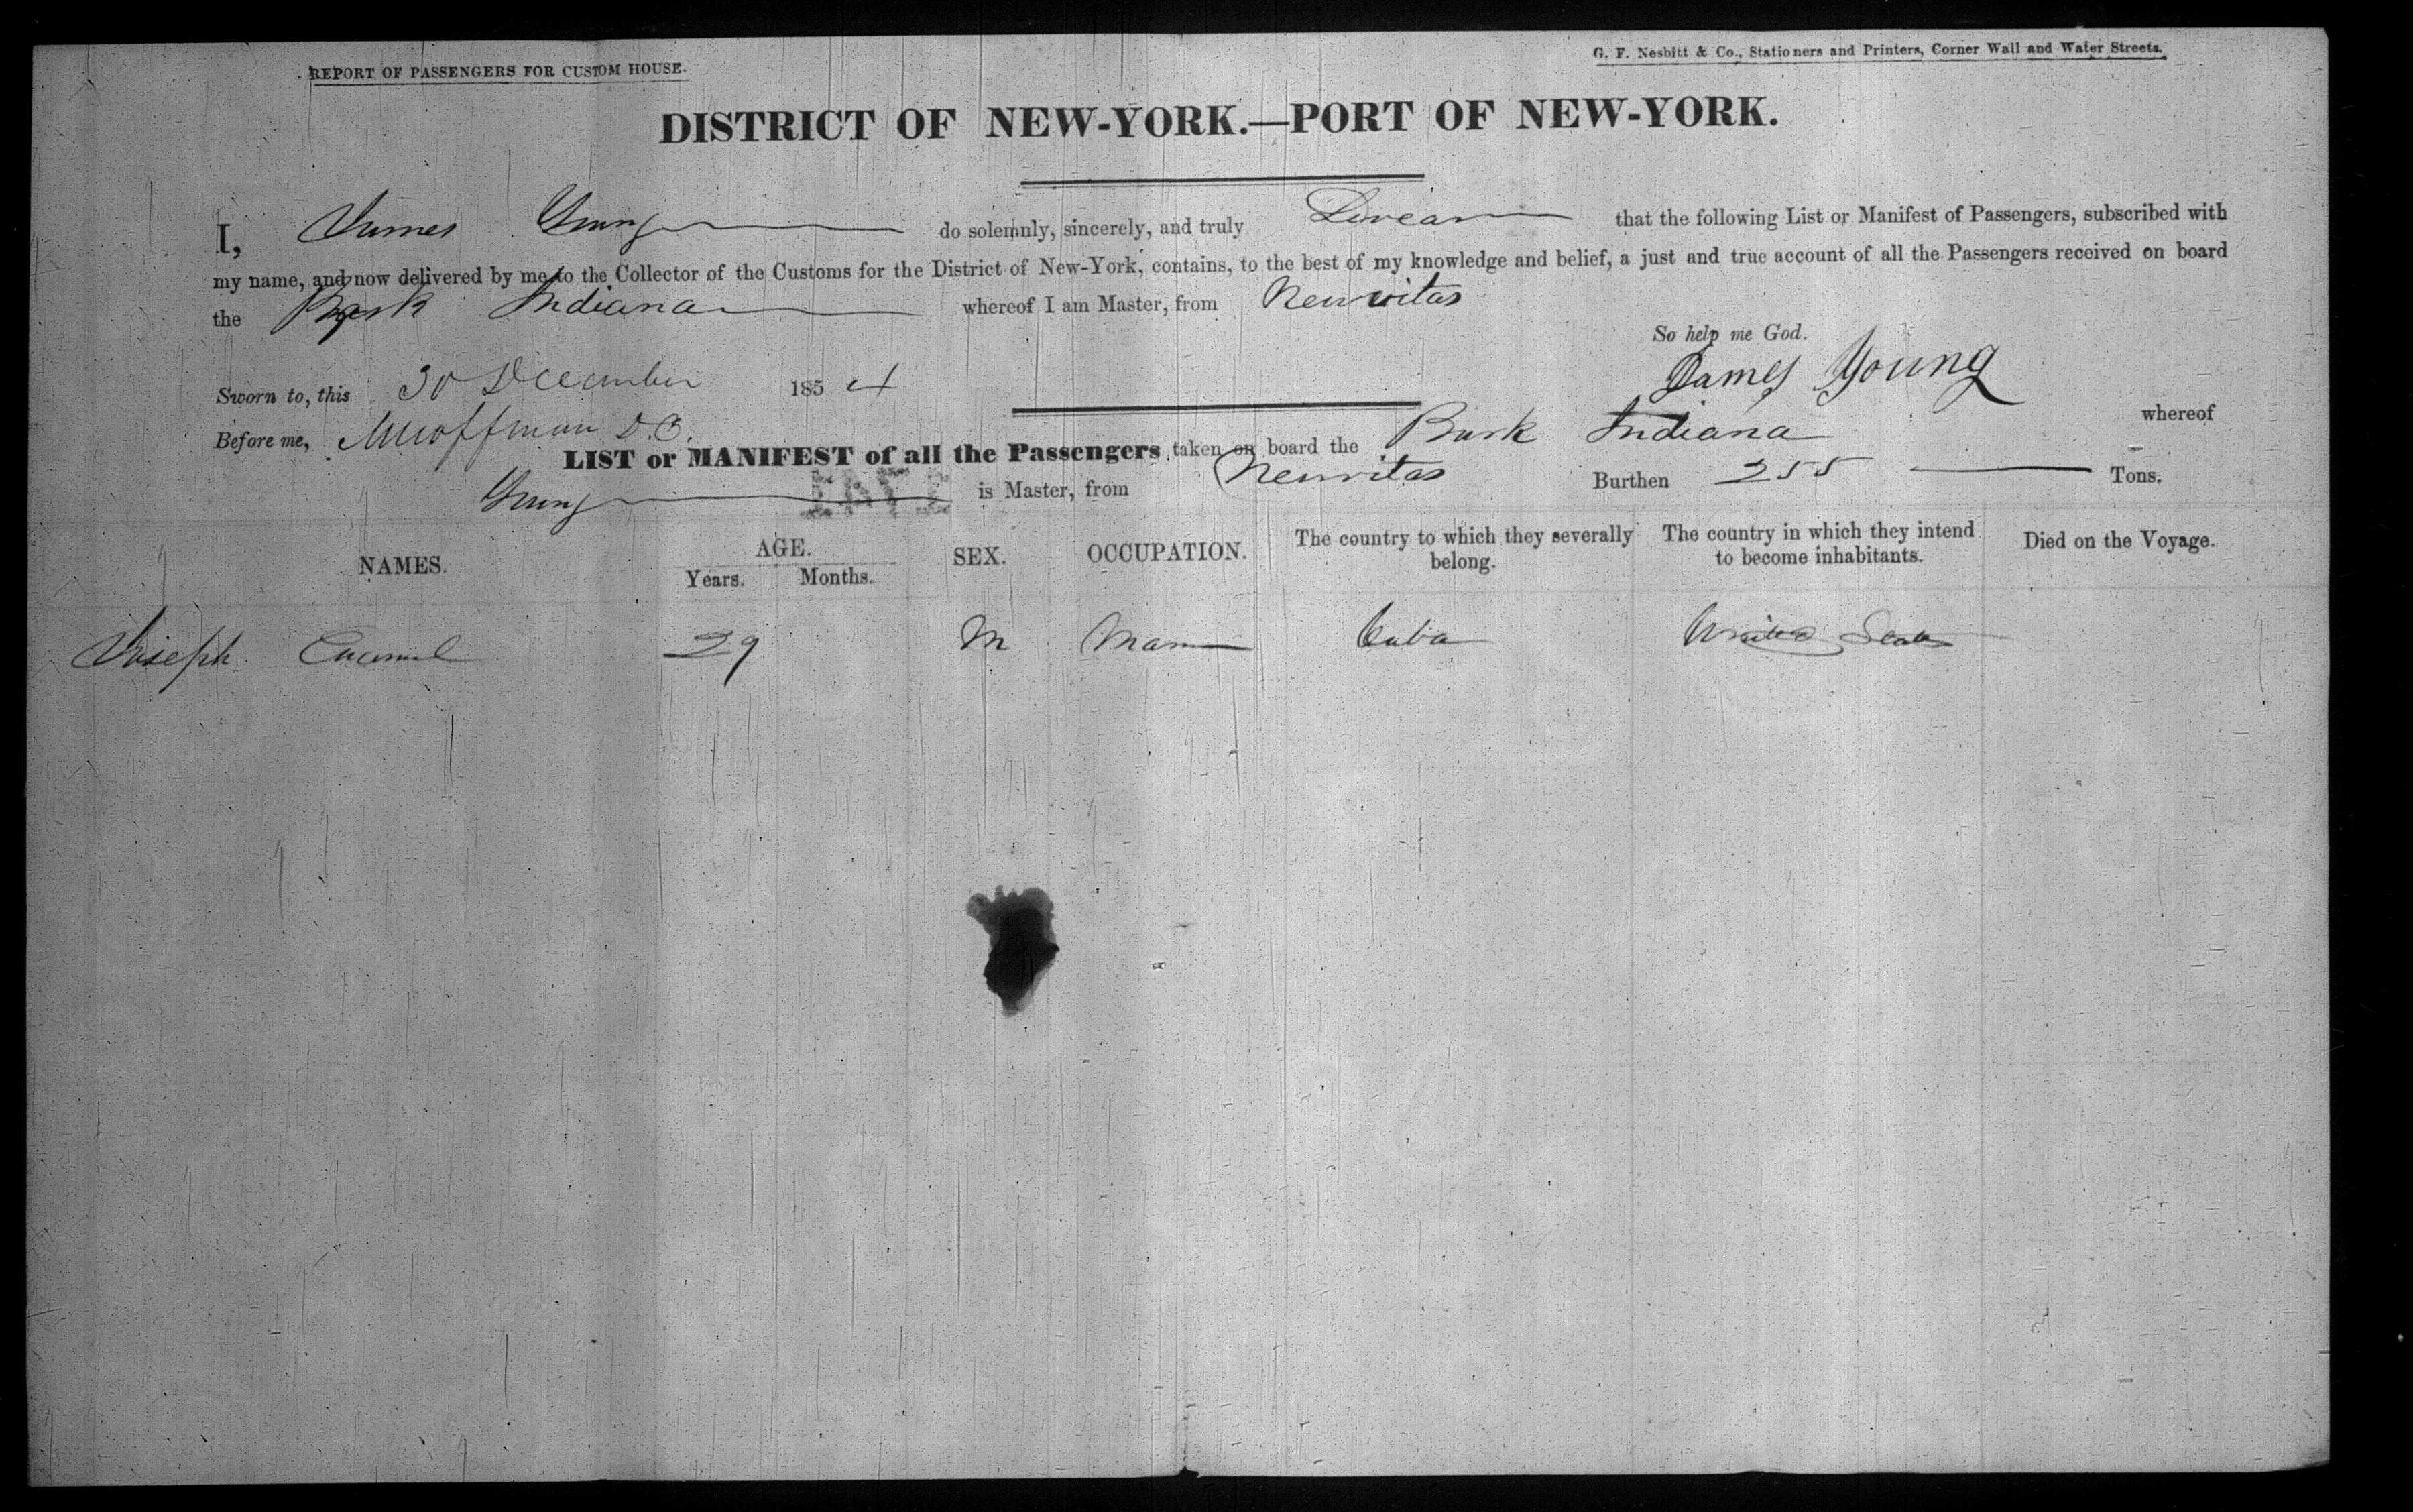 REPORT OF PASSENGERS FOR CUSTOM HOUSE.
G. F. Nesbitt & Co., Stationers and Printers, Corner Wall and Water Streets.
DISTRICT OF NEW-YORK.—PORT OF NEW-YORK.
I, James Young do solemnly, sincerely, and truly Swear that the following List or Manifest of Passengers, subscribed with
my name, and now delivered by me to the Collector of the Customs for the District of New-York, contains, to the best of my knowledge and belief, a just and true account of all the Passengers received on board
the Bark Indiana whereof I am Master, from Neuvitas
So help me God.
Sworn to, this 30 December 1854 James Young
Before me, D.C.
LIST or MANIFEST of all the Passengers taken on board the Bark Indiana whereof
Young is Master, from Neuvitas Burthen 255 Tons.
NAMES. AGE. SEX. OCCUPATION. The country to which they severally belong. The country in which they intend to become inhabitants. Died on the Voyage.
Years. Months.
Joseph 29 M Cuba United States